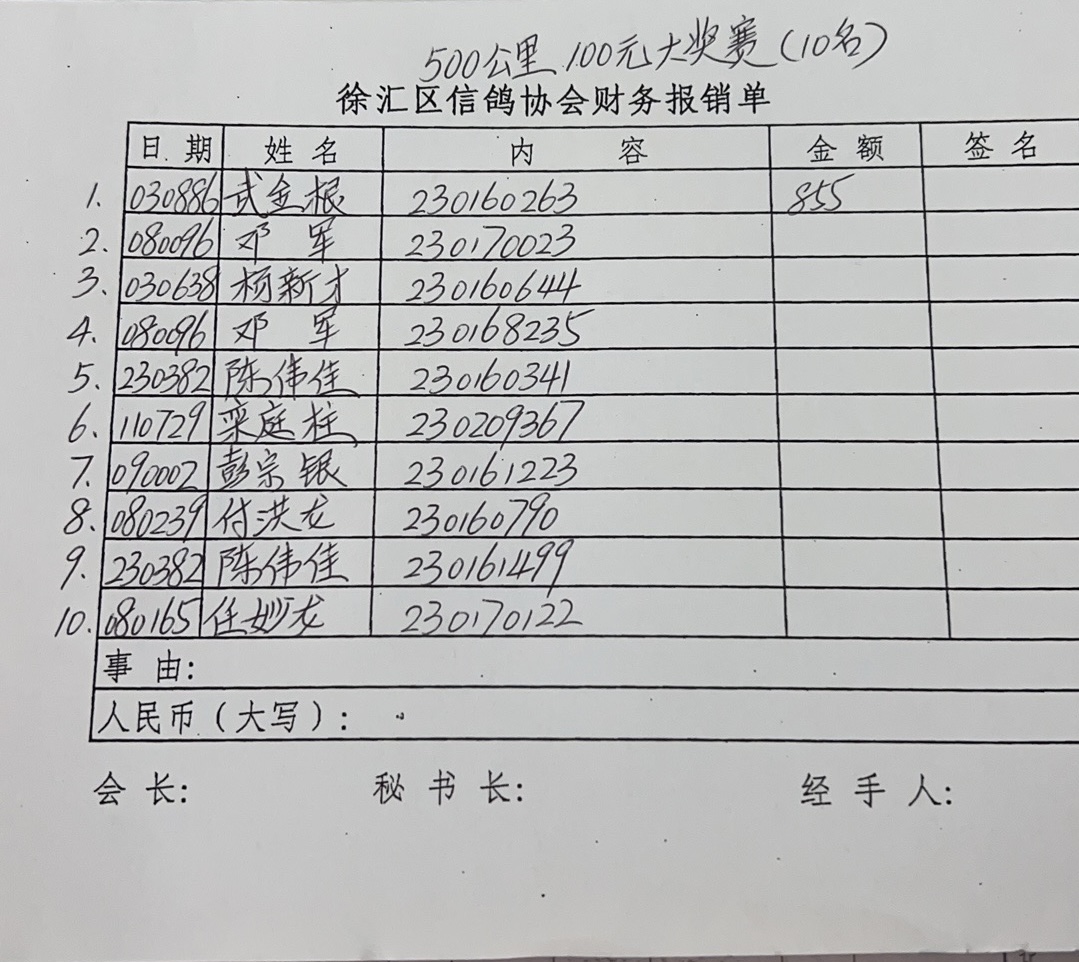 500公里 100元大奖赛(10名)
徐汇区信鸽协会财务报销单
日期 姓名 内容 金额 签名
1. 030886 武金根 230160263 855
2. 080096 邓军 230170023
3. 030638 杨新才 230160644
4. 080096 邓军 230168235
5. 230382 陈伟佳 230160341
6. 110729 栾庭柱 230209367
7. 090002 彭宗银 230161223
8. 080239 付洪龙 230160790
9. 230382 陈伟佳 230161499
10. 080165 任妙龙 230170122
事由:
人民币(大写):
会长: 秘书长: 经手人: